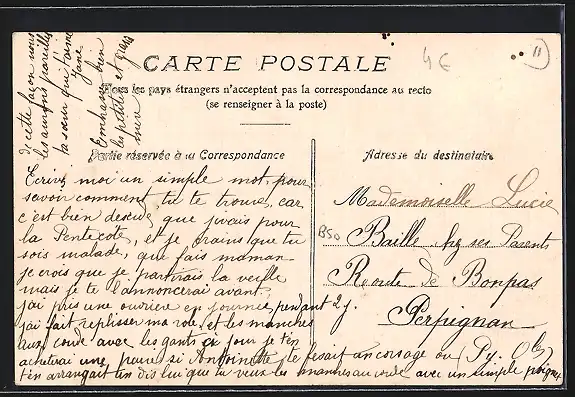 4€
11
CARTE POSTALE
Tous les pays étrangers n'acceptent pas la correspondance au recto
(se renseigner à la poste)
Partie réservée à la Correspondance
Adresse du destinataire
Ecris moi un simple mot pour
savoir comment tu te trouve, car
c'est bien descidé que j'irais pour
la Pentecôte, et je crains que tu
sois malade, que fais maman
je crois que je partirais la veille
mais je te l'annoncerai avant.
j'ai pris une ouvrière en journée, pendant 2 j.
j'ai fait replisser ma robe, et les manches
aux coude avec les gants à jour je t'en
acheterai une paire si Antoinette te fesait un corsage ou
t'en arrangait un dis lui que tu veux les manches au coude avec un simple poignet
de cette façon nous
les aurons pareilles
ta sœur qui t'aime
Jane
Embrasse bien
les petites et grand
mère
Mademoiselle Lucie
Baille chez ses Parents
Route de Bompas
Perpignan
(Py. Oles)
BSO